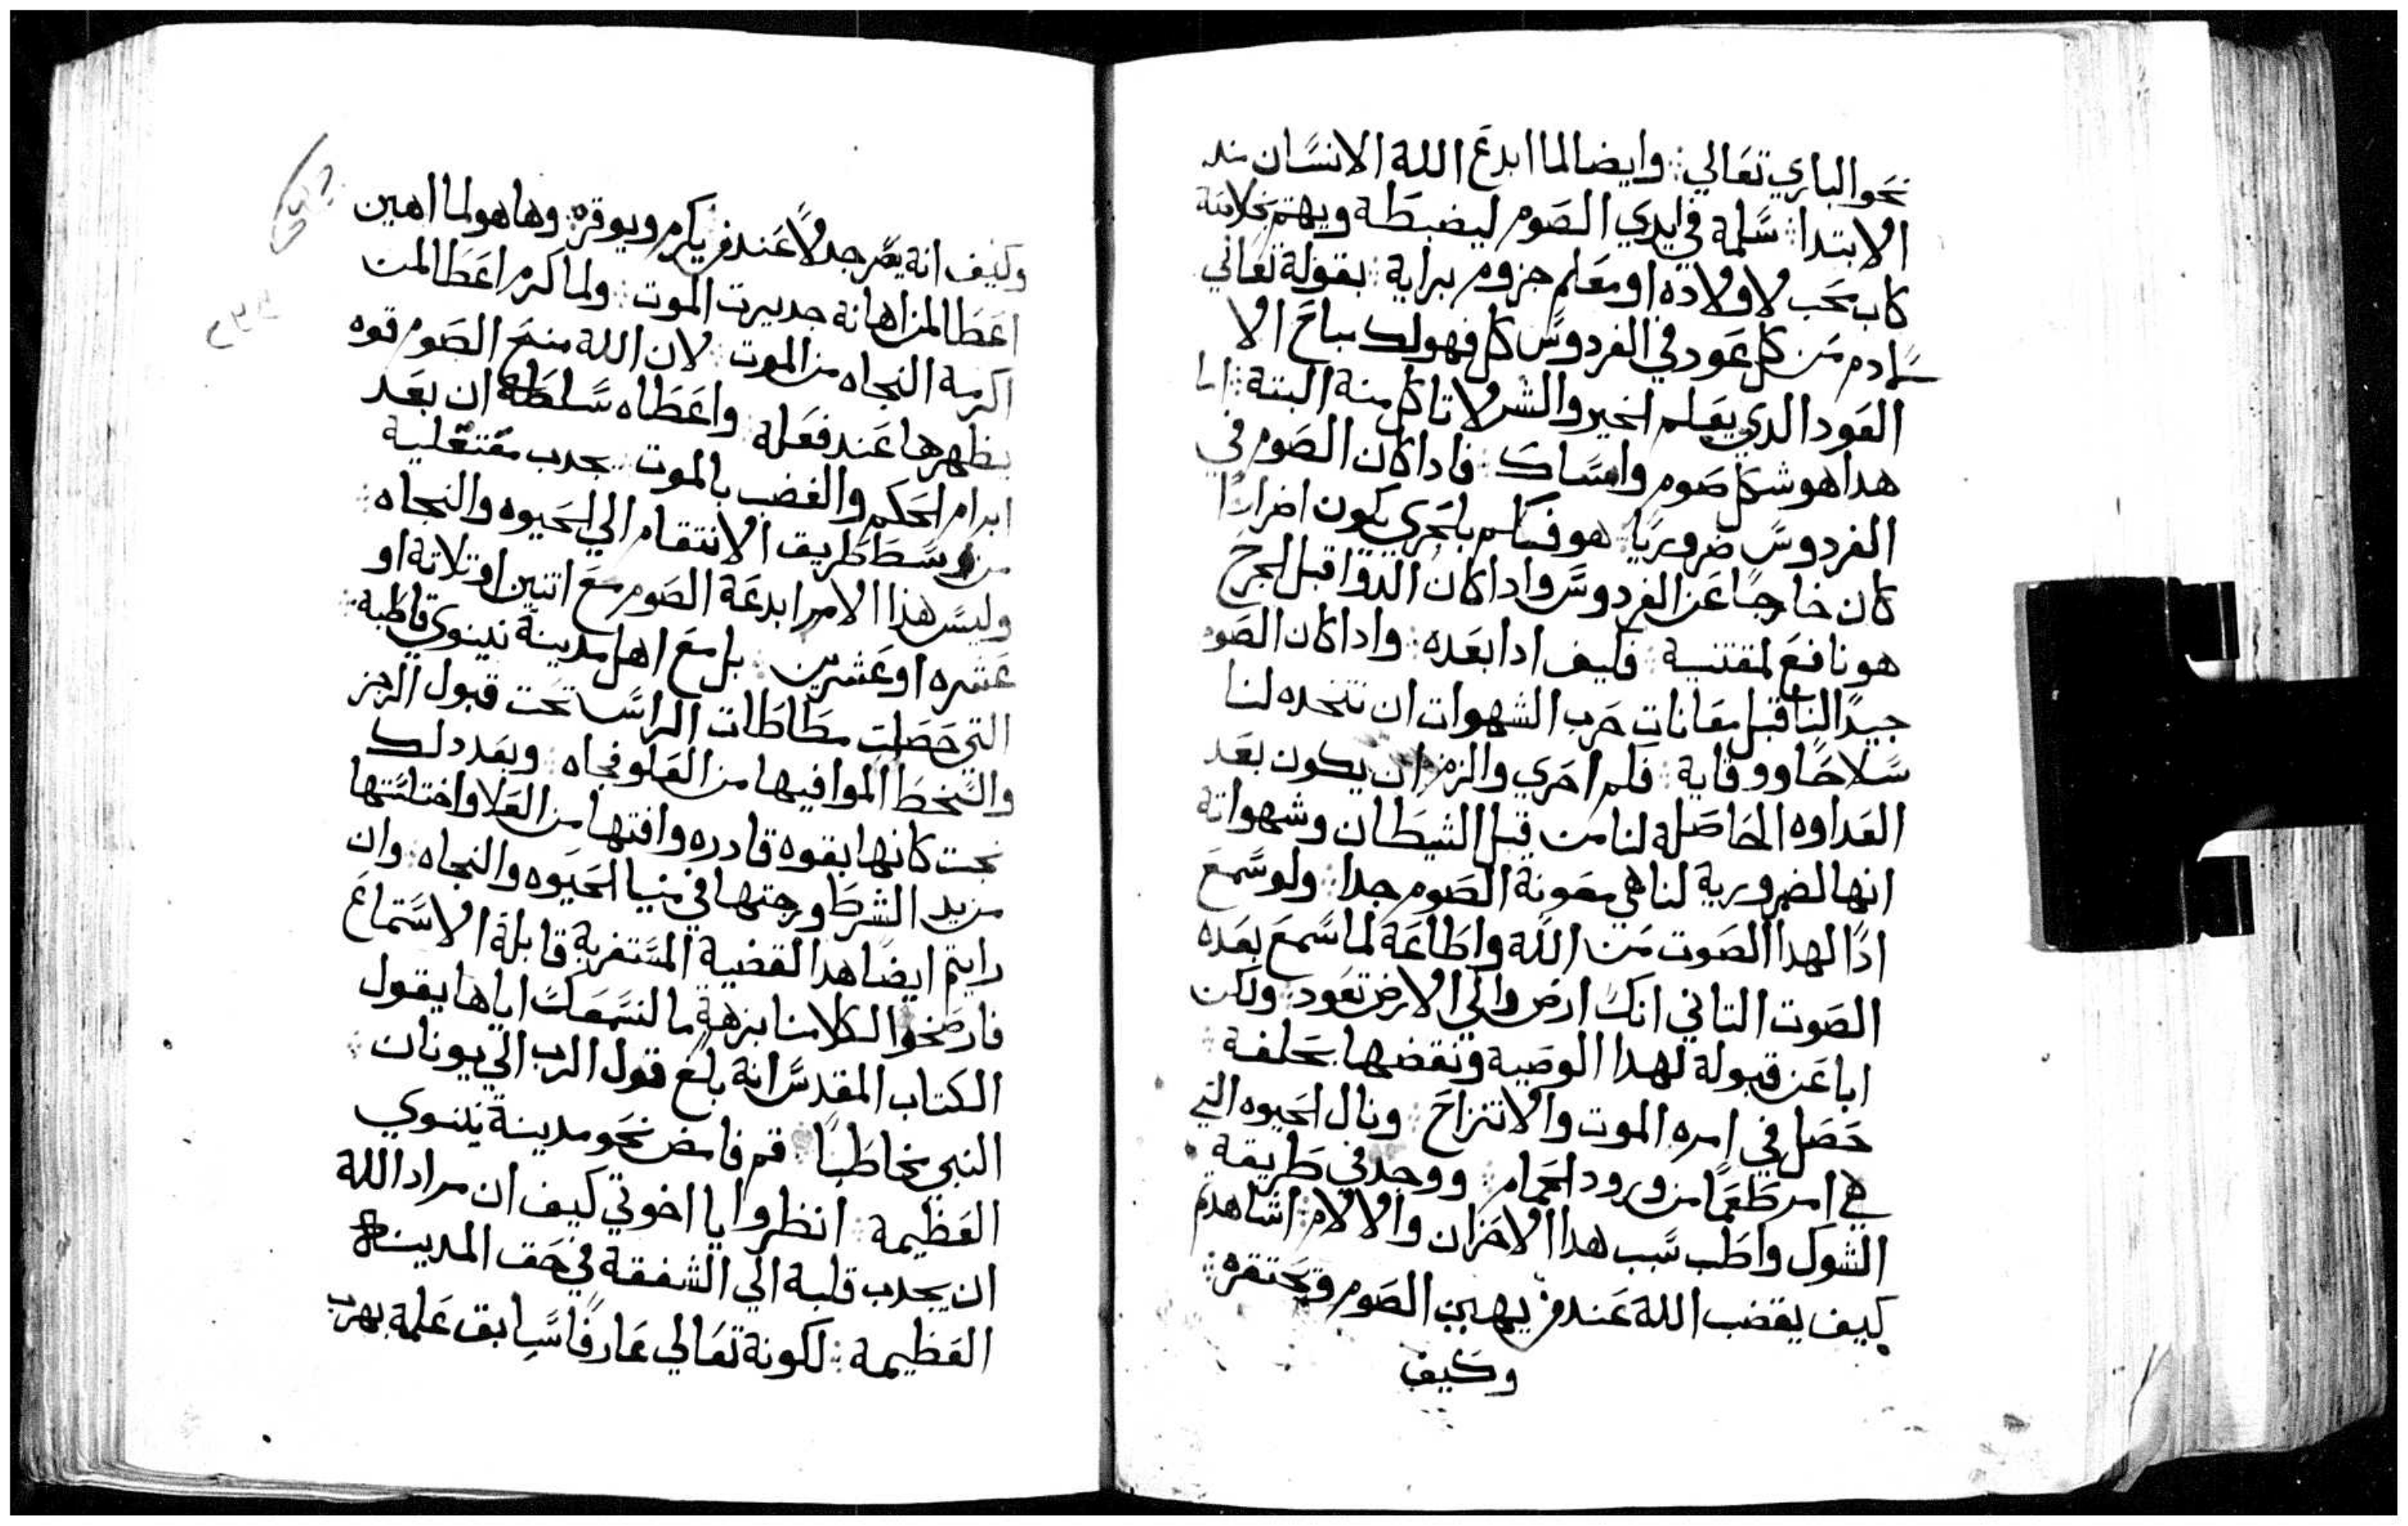 نحو الباري تعالي ⁘ وايضا لما ابدع الله الانسان مند
الابتدا ⁘ سلمة في ايدي الصوم ليضبطة ويهتم بخلاصة
كاب محب لاولاده او معلم حزوم براية ⁘ بقولة تعالي
لادم من كل عود في الفردوس كل فهو لك مباح الا
العود الدي يعلم الخير والشر لا تاكل منة البتة ⁘ اما
هدا هو شكل صوم وامساك ⁘ فادا كان الصوم في
الفردوس ضروريا ⁘ هو فكم بالحري يكون اضرارا
كان خارجا عن الفردوس وادا كان الدوا قبل الجرح
هو نافع لمقتنية ⁘ فكيف ادا بعده ⁘ وادا كان الصوم
جيدا لنا قبل معانات حرب الشهوات ان نتخده لنا
سلاحا ووقاية ⁘ فكم احري والزم ان يكون بعد
العداوه الحاصلة لنا من قبل الشيطان وشهواتة
انها لضرورية لنا هي معونة الصوم جدا ⁘ ولو سمع
ادا لهدا الصوت من الله واطاعة لما سمع بعده
الصوت التاني انك ارض والي الارض تعود ⁘ ولكن
ابا عن قبولة لهدا الوصية ونقضها بخلفة ⁘
حصل في امره الموت والانتزاح ⁘ ونال الحيوه التي
هي امر طعما من ورود الحمام ⁘ ووجد في طريقة
الشوك واطب سبب هدا الاحزان والالام ⁘ اشاهدتم
كيف يغضب الله عند من يهين الصوم ويحتقره ⁘
وكيف
وكيف انة يصر جدلا عند من يكرم ويوقره ⁘ وها هو لما اهين
اعطا لمن اهانة جديرت الموت ⁘ ولما كرم اعطا لمن
اكرمة النجاه من الموت ⁘ لان الله منح الصوم قوه
يظهرها عند فعلة ⁘ واعطاه سلطة ان بعد
ابرام الحكم والغضب بالموت ⁘ يجدب مقتعلية
من وسط طريق الانتقام الي الحيوه والنجاه ⁘
وليس هذا الامر ابدعة الصوم مع اتنين او تلاتة او
عشره او عشرين ⁘ بل مع اهل مدينة نينوي قاطبة ⁘
التي حصلت مطاطات الراس تحت قبول الرجز
والسخط الموافيها من العلو فجاه ⁘ وبعد دلك
نجت كانها بقوه قادره وافتها من العلا واختلستها
من يد الشرط وزجتها في منيا الحيوه والنجاه ⁘ وان
رايتم ايضا هدا القضية المستغربة قابلة الاستماع
فارضخوا لكلامنا بزهة ما لنسمعكم اياها يقول
الكتاب المقدس انة بلغ قول الرب الي يونان ⁘
النبي مخاطبا ⁘ قم فامض نحو مدينة نينوي
العظيمة ⁘ انظروا يا اخوتي كيف ان مراد الله
ان يجدب قلبة الي الشفقة في حق المدينة
العظيمة ⁘ لكونة تعالي عارفا سابق علمة بهرب